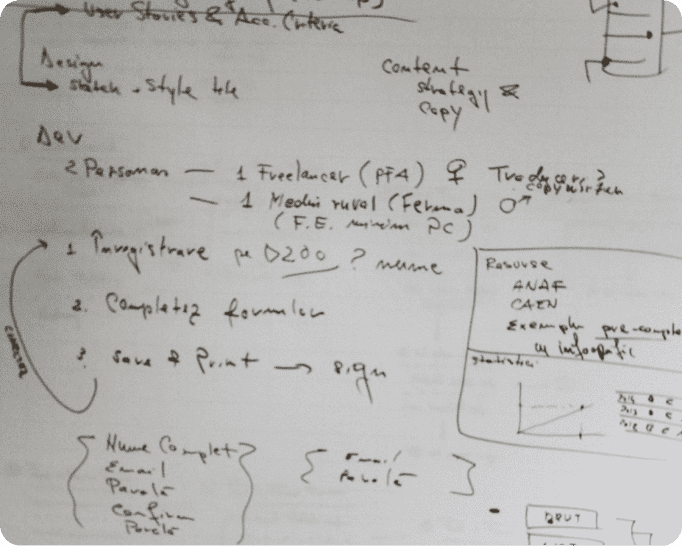 User Stories & Acc. Criteria
Design
sketch + Style tile
Content
strategy &
copy
Dev
2 Personas — 1 Freelancer (PFA) ♀
copywriter
— 1 Mediu rural (Ferma) ♂
(F.E. minim PC)
1 Înregistrare pe D200 ? nume
2. Completez formular
3. Save & Print → sign
Resurse
ANAF
CAEN
Exemplu pre-comple
infografic
Statistici
Nume Complet
Email
Parolă
Confirm
Parolă
Email
Parolă